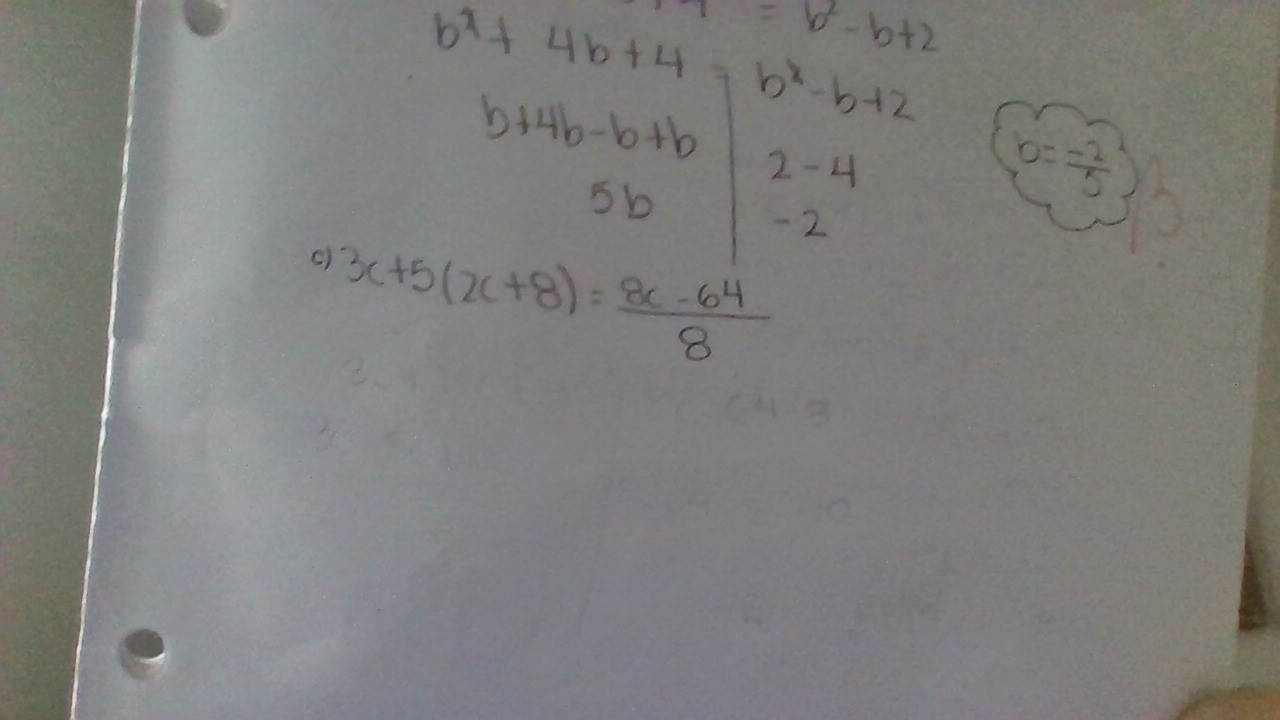 = b² - b+2
b²+ 4b+4 = b² - b+2
b+4b-b+b 2-4
5b -2
b= -2/5
c) 3c+5(2c+8) = 8c - 64
8